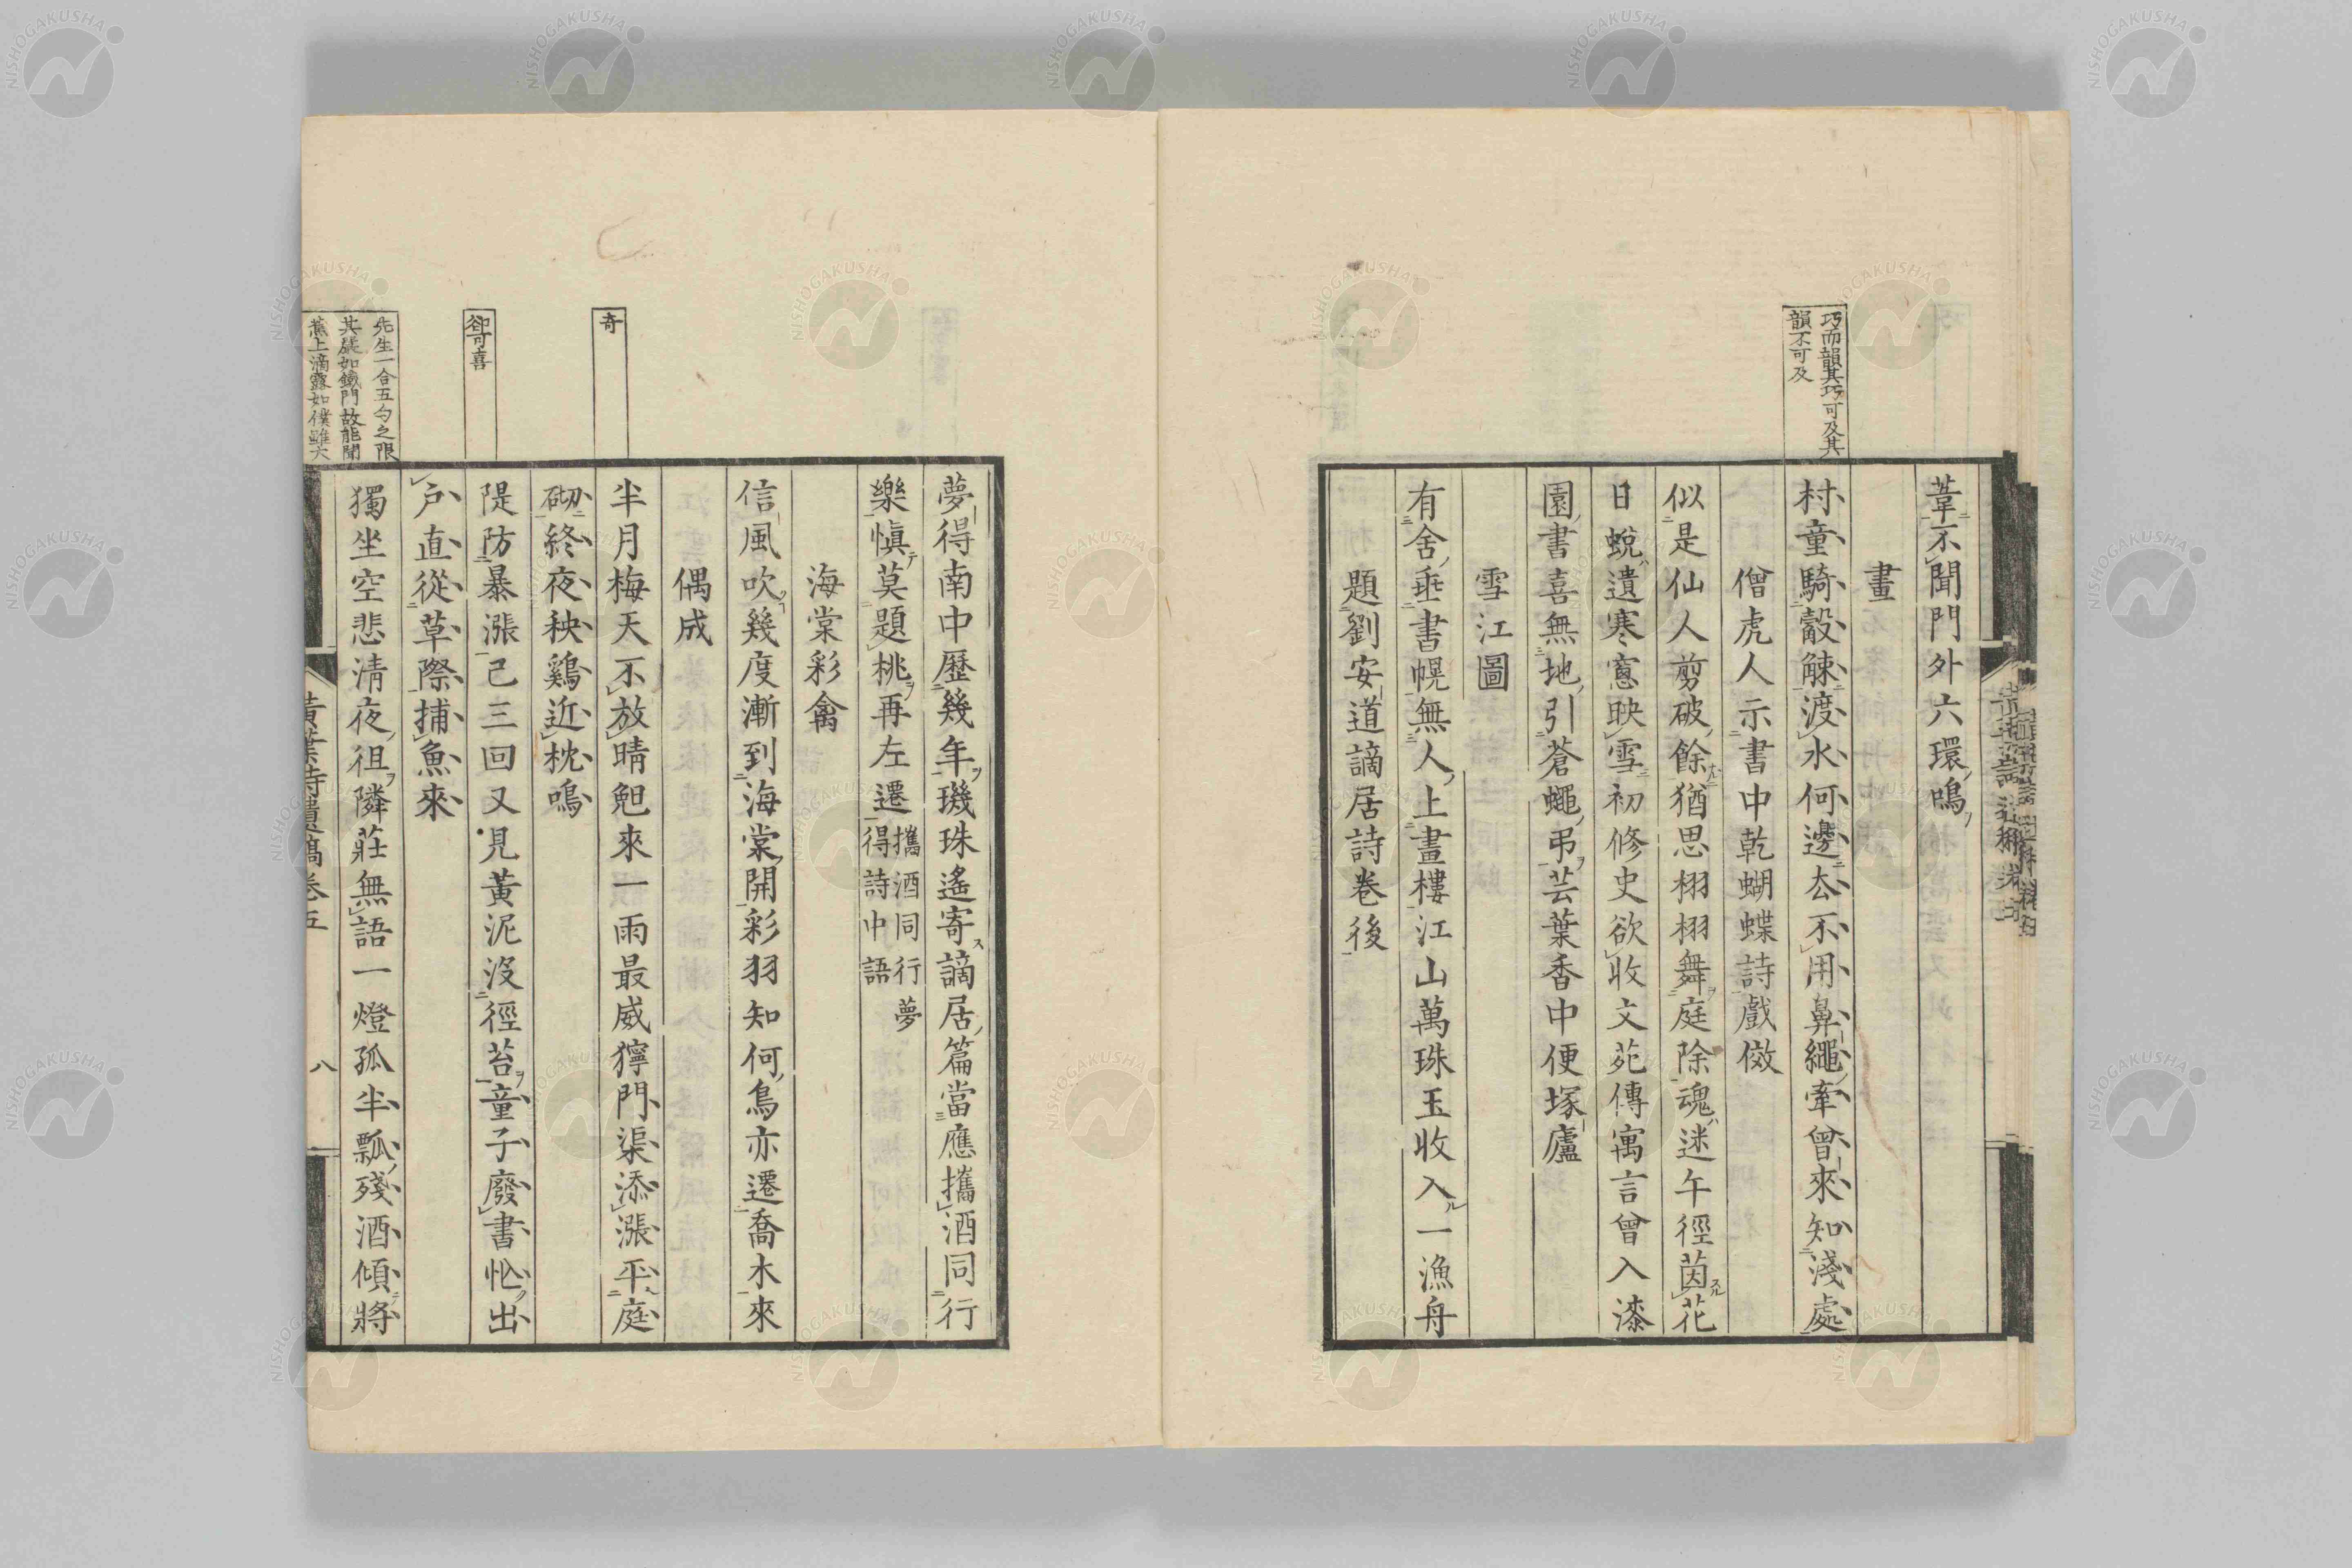 葦不聞門外六環鳴
畫
巧而韻其巧可及其
韻不可及
村童騎觳觫渡水何邊去不用鼻繩牽曾來知淺處
僧虎人示書中乾蝴蝶詩戲傚
似是仙人剪破餘猶思栩栩舞庭除魂迷午徑茵花
日蛻遺寒窻映雪初修史欲收文苑傳寓言曾入漆
園書喜無地引蒼蠅弔芸葉香中便塚廬
雪江圖
有舍垂書幌無人上畫樓江山萬珠玉收入一漁舟
題劉安道謫居詩卷後
夢得南中歷幾年璣珠遙寄謫居篇當應攜酒同行
樂愼莫題桃再左遷攜酒同行夢
得詩中語
海棠彩禽
信風吹幾度漸到海棠開彩羽知何鳥亦遷喬木來
偶成
奇
半月梅天不放晴卼來一雨最威獰門渠添漲平庭
砌終夜秧鷄近枕鳴
卻可喜
隄防暴漲已三回又見黃泥沒徑苔童子廢書忙出
戶直從草際捕魚來
先生一合五勺之限
其嚴如鐵門故能聞
蕉上滴露如僕雖大
獨坐空悲淸夜徂隣莊無語一燈孤半瓢殘酒傾將
黃葉詩遺稿卷五
八
NISHOGAKUSHA